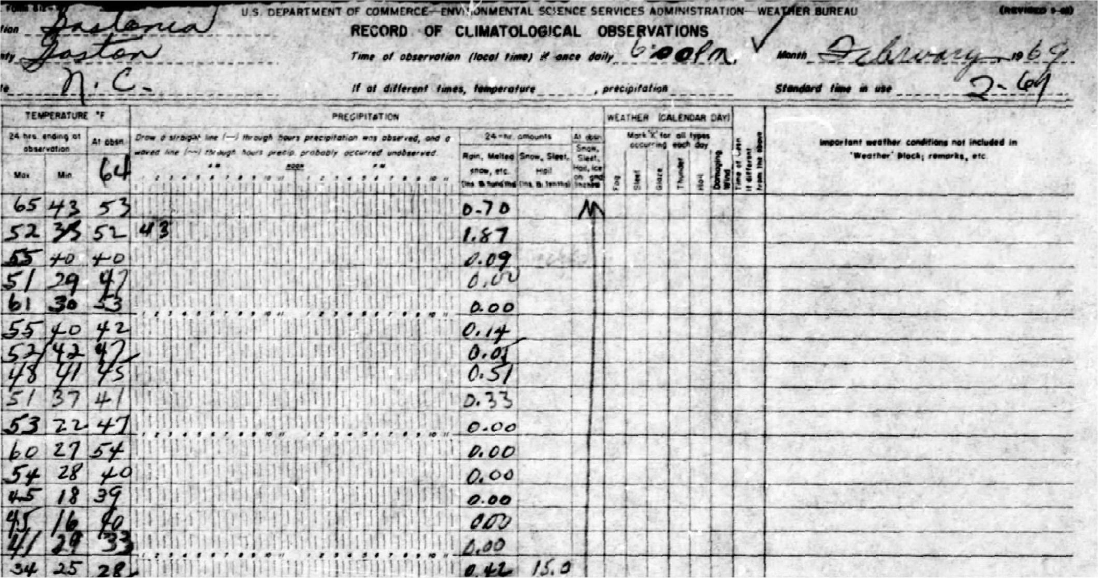 U.S. DEPARTMENT OF COMMERCE—ENVIRONMENTAL SCIENCE SERVICES ADMINISTRATION—WEATHER BUREAU (REVISED
tion Gastonia RECORD OF CLIMATOLOGICAL OBSERVATIONS
ty Gaston Time of observation (local time) if once daily 6:00 P.M. Month February 1969
te N.C. If at different times, temperature , precipitation Standard time in use
TEMPERATURE °F PRECIPITATION WEATHER (CALENDAR DAY)
24 hrs. ending at observation At obsn. Draw a straight line (—) through hours precipitation was observed, and a 24-hr. amounts At obsn Mark 'X' for all types Important weather conditions not included in
waved line (~) through hours precip. probably occurred unobserved. occurring each day 'Weather' Block; remarks, etc.
Max Min 64 AM NOON PM Rain, Melted snow, etc. (Ins. & hundths) Snow, Sleet, Hail (Ins. & tenths) Snow, Sleet, Hail, Ice on Fog Sleet Glaze Thunder Hail Damaging Wind Time of if different from the above
65 43 53 0.70 M
52 52 43 1.87
55 40 40 0.09
51 29 47 0.00
61 30 53 0.00
55 40 42 0.14
52 42 47 0.01
48 41 45 0.51
51 37 41 0.33
53 22 47 0.00
60 27 54 0.00
54 28 40 0.00
45 18 39 0.00
45 16 40 0.00
41 29 33 0.00
34 25 28 0.42 15.0